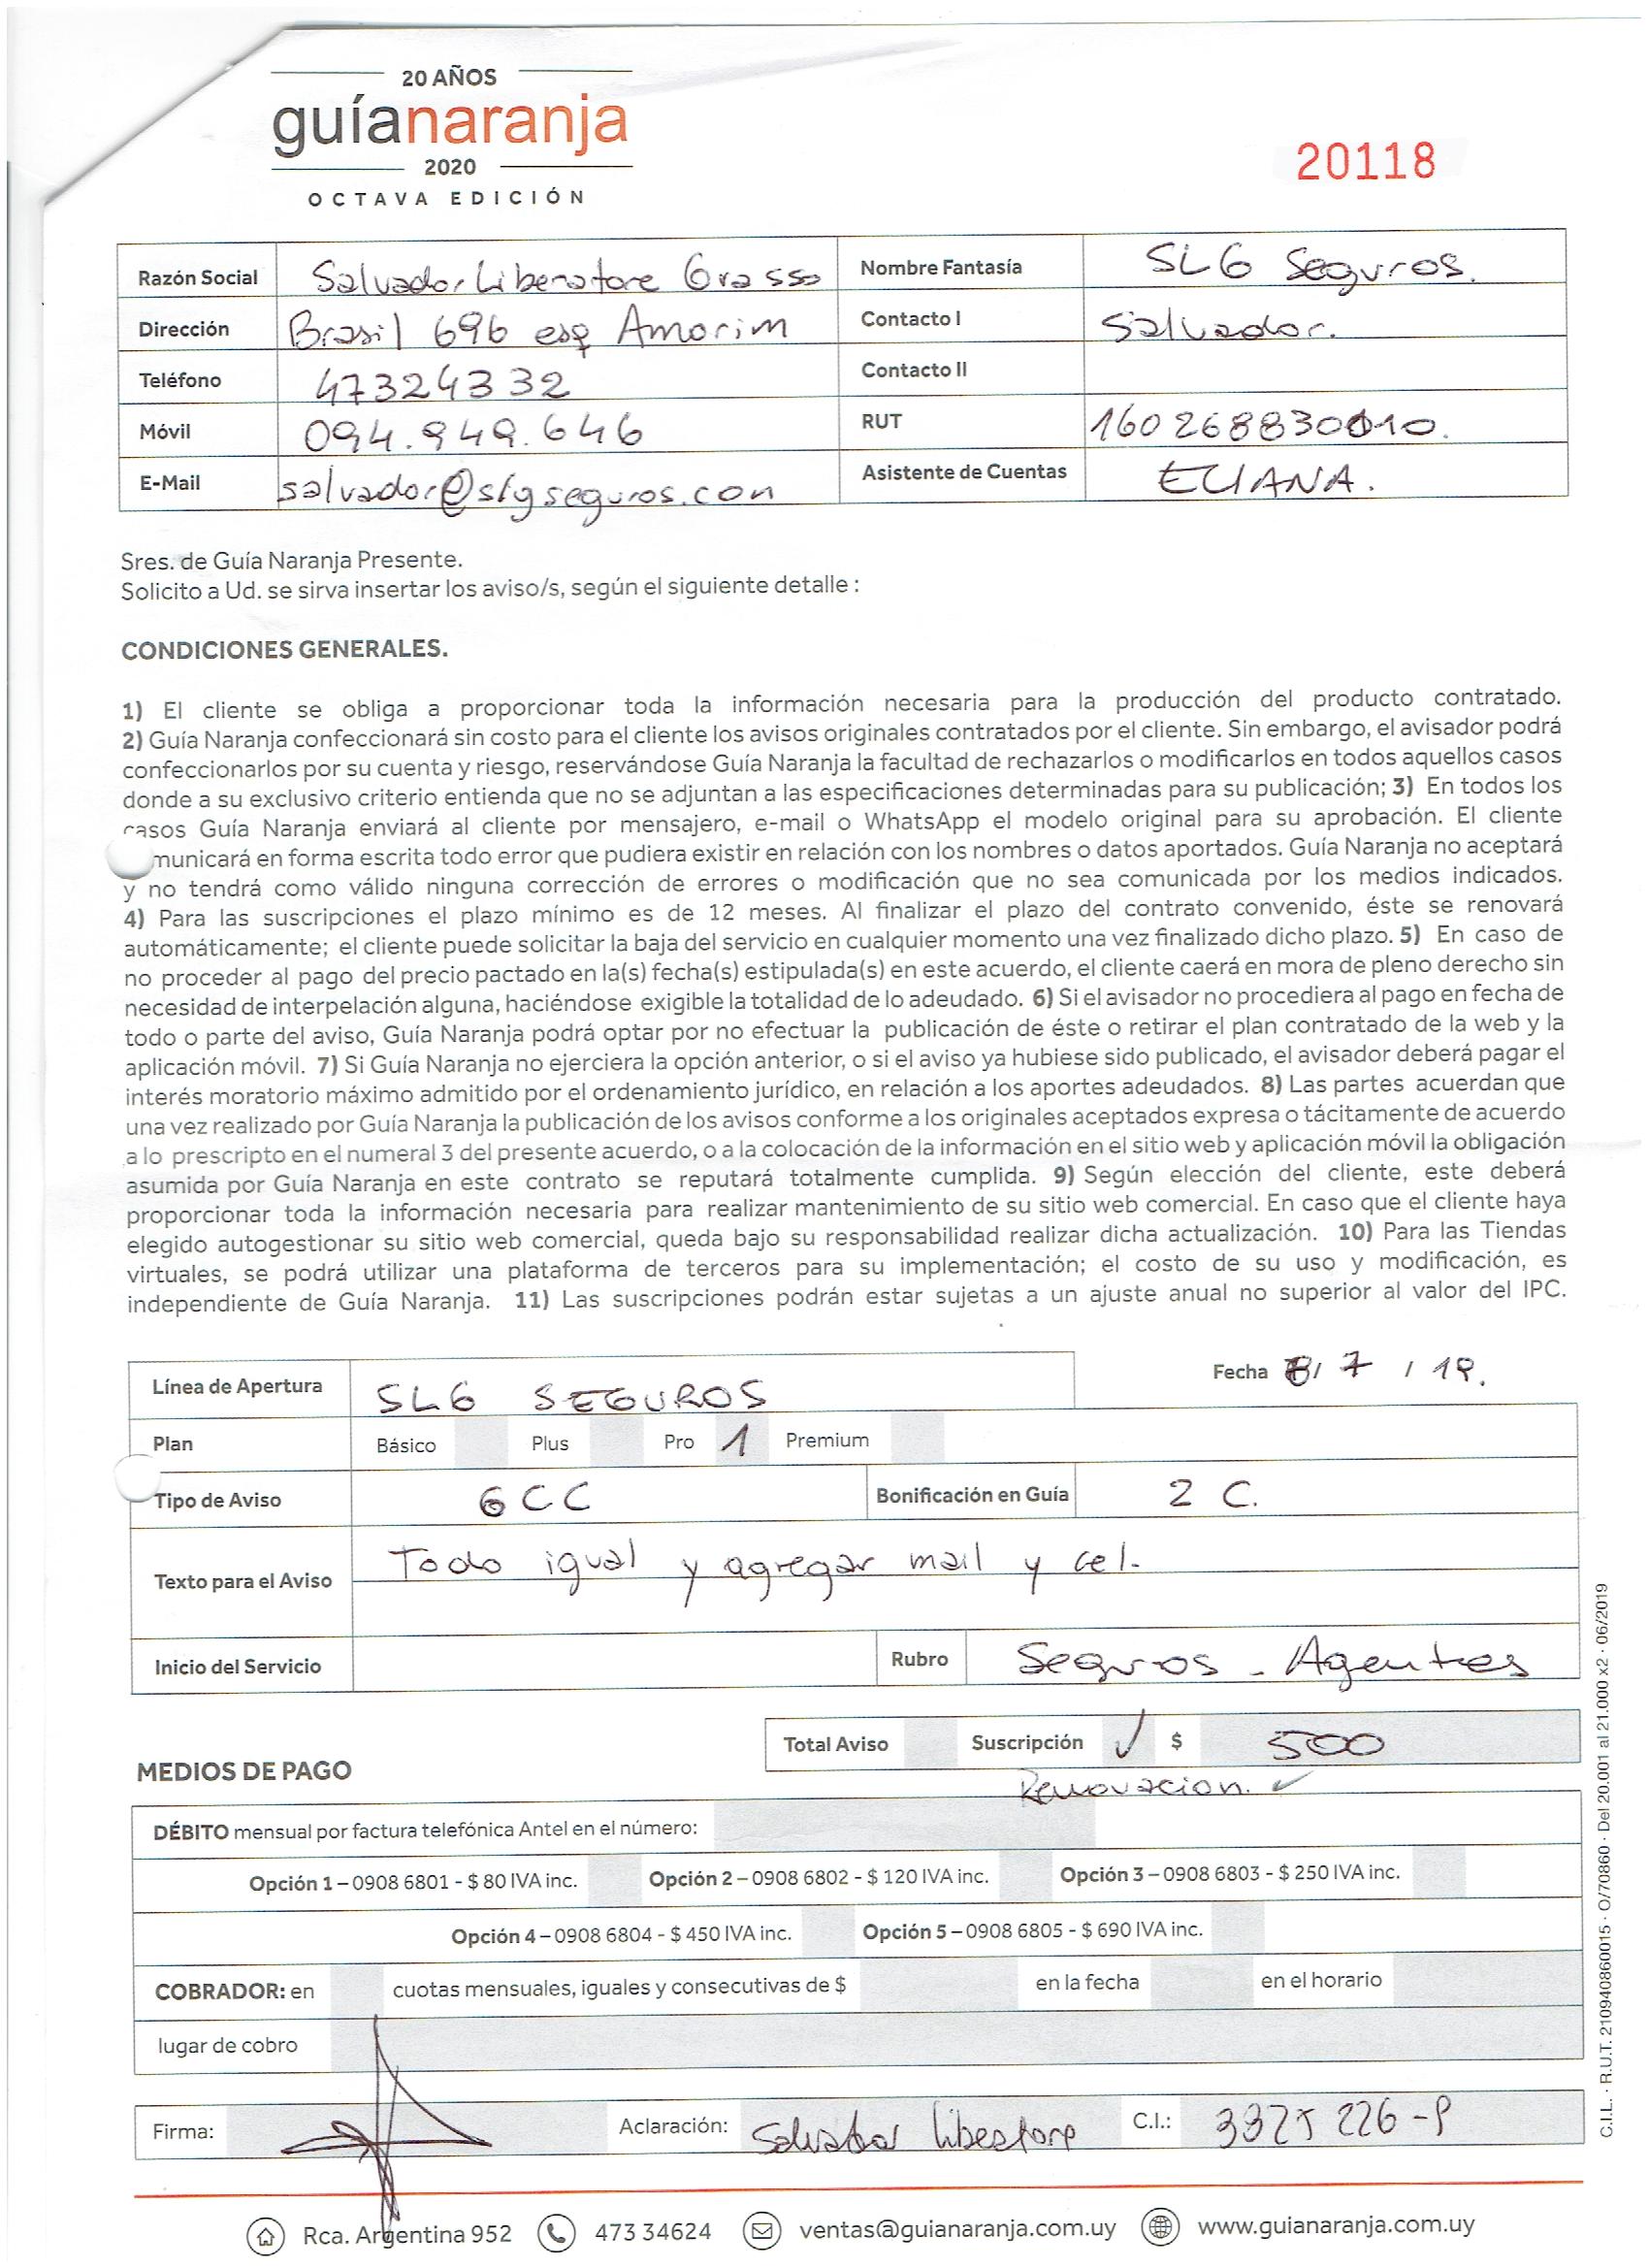 20 AÑOS
guíanaranja
2020
OCTAVA EDICIÓN
20118
Razón Social Salvador Liberatore Grasso Nombre Fantasía SLG Seguros.
Dirección Brasil 696 esq Amorim Contacto I Salvador.
Teléfono 47324332 Contacto II
Móvil 094.949.646 RUT 160268830010.
E-Mail salvador@slgseguros.com Asistente de Cuentas ELIANA.
Sres. de Guía Naranja Presente.
Solicito a Ud. se sirva insertar los aviso/s, según el siguiente detalle :
CONDICIONES GENERALES.
1) El cliente se obliga a proporcionar toda la información necesaria para la producción del producto contratado.
2) Guía Naranja confeccionará sin costo para el cliente los avisos originales contratados por el cliente. Sin embargo, el avisador podrá
confeccionarlos por su cuenta y riesgo, reservándose Guía Naranja la facultad de rechazarlos o modificarlos en todos aquellos casos
donde a su exclusivo criterio entienda que no se adjuntan a las especificaciones determinadas para su publicación; 3) En todos los
casos Guía Naranja enviará al cliente por mensajero, e-mail o WhatsApp el modelo original para su aprobación. El cliente
municará en forma escrita todo error que pudiera existir en relación con los nombres o datos aportados. Guía Naranja no aceptará
y no tendrá como válido ninguna corrección de errores o modificación que no sea comunicada por los medios indicados.
4) Para las suscripciones el plazo mínimo es de 12 meses. Al finalizar el plazo del contrato convenido, éste se renovará
automáticamente; el cliente puede solicitar la baja del servicio en cualquier momento una vez finalizado dicho plazo. 5) En caso de
no proceder al pago del precio pactado en la(s) fecha(s) estipulada(s) en este acuerdo, el cliente caerá en mora de pleno derecho sin
necesidad de interpelación alguna, haciéndose exigible la totalidad de lo adeudado. 6) Si el avisador no procediera al pago en fecha de
todo o parte del aviso, Guía Naranja podrá optar por no efectuar la publicación de éste o retirar el plan contratado de la web y la
aplicación móvil. 7) Si Guía Naranja no ejerciera la opción anterior, o si el aviso ya hubiese sido publicado, el avisador deberá pagar el
interés moratorio máximo admitido por el ordenamiento jurídico, en relación a los aportes adeudados. 8) Las partes acuerdan que
una vez realizado por Guía Naranja la publicación de los avisos conforme a los originales aceptados expresa o tácitamente de acuerdo
a lo prescripto en el numeral 3 del presente acuerdo, o a la colocación de la información en el sitio web y aplicación móvil la obligación
asumida por Guía Naranja en este contrato se reputará totalmente cumplida. 9) Según elección del cliente, este deberá
proporcionar toda la información necesaria para realizar mantenimiento de su sitio web comercial. En caso que el cliente haya
elegido autogestionar su sitio web comercial, queda bajo su responsabilidad realizar dicha actualización. 10) Para las Tiendas
virtuales, se podrá utilizar una plataforma de terceros para su implementación; el costo de su uso y modificación, es
independiente de Guía Naranja. 11) Las suscripciones podrán estar sujetas a un ajuste anual no superior al valor del IPC.
Línea de Apertura SLG SEGUROS Fecha 8/ 7 / 19.
Plan Básico Plus Pro 1 Premium
Tipo de Aviso 6CC Bonificación en Guía 2 C.
Texto para el Aviso Todo igual y agregar mail y cel.
Inicio del Servicio Rubro Seguros - Agentes
Total Aviso Suscripción ✓ $ 500
MEDIOS DE PAGO Renovacion. ✓
DÉBITO mensual por factura telefónica Antel en el número:
Opción 1 – 0908 6801 - $ 80 IVA inc. Opción 2 – 0908 6802 - $ 120 IVA inc. Opción 3 – 0908 6803 - $ 250 IVA inc.
Opción 4 – 0908 6804 - $ 450 IVA inc. Opción 5 – 0908 6805 - $ 690 IVA inc.
COBRADOR: en cuotas mensuales, iguales y consecutivas de $ en la fecha en el horario
lugar de cobro
Firma: Aclaración: Salvador Liberatore C.I.: 3325226-8
Rca. Argentina 952 473 34624 ventas@guianaranja.com.uy www.guianaranja.com.uy
C.I.L. · R.U.T. 210940860015 · O/70860 · Del 20.001 al 21.000 x2 · 06/2019